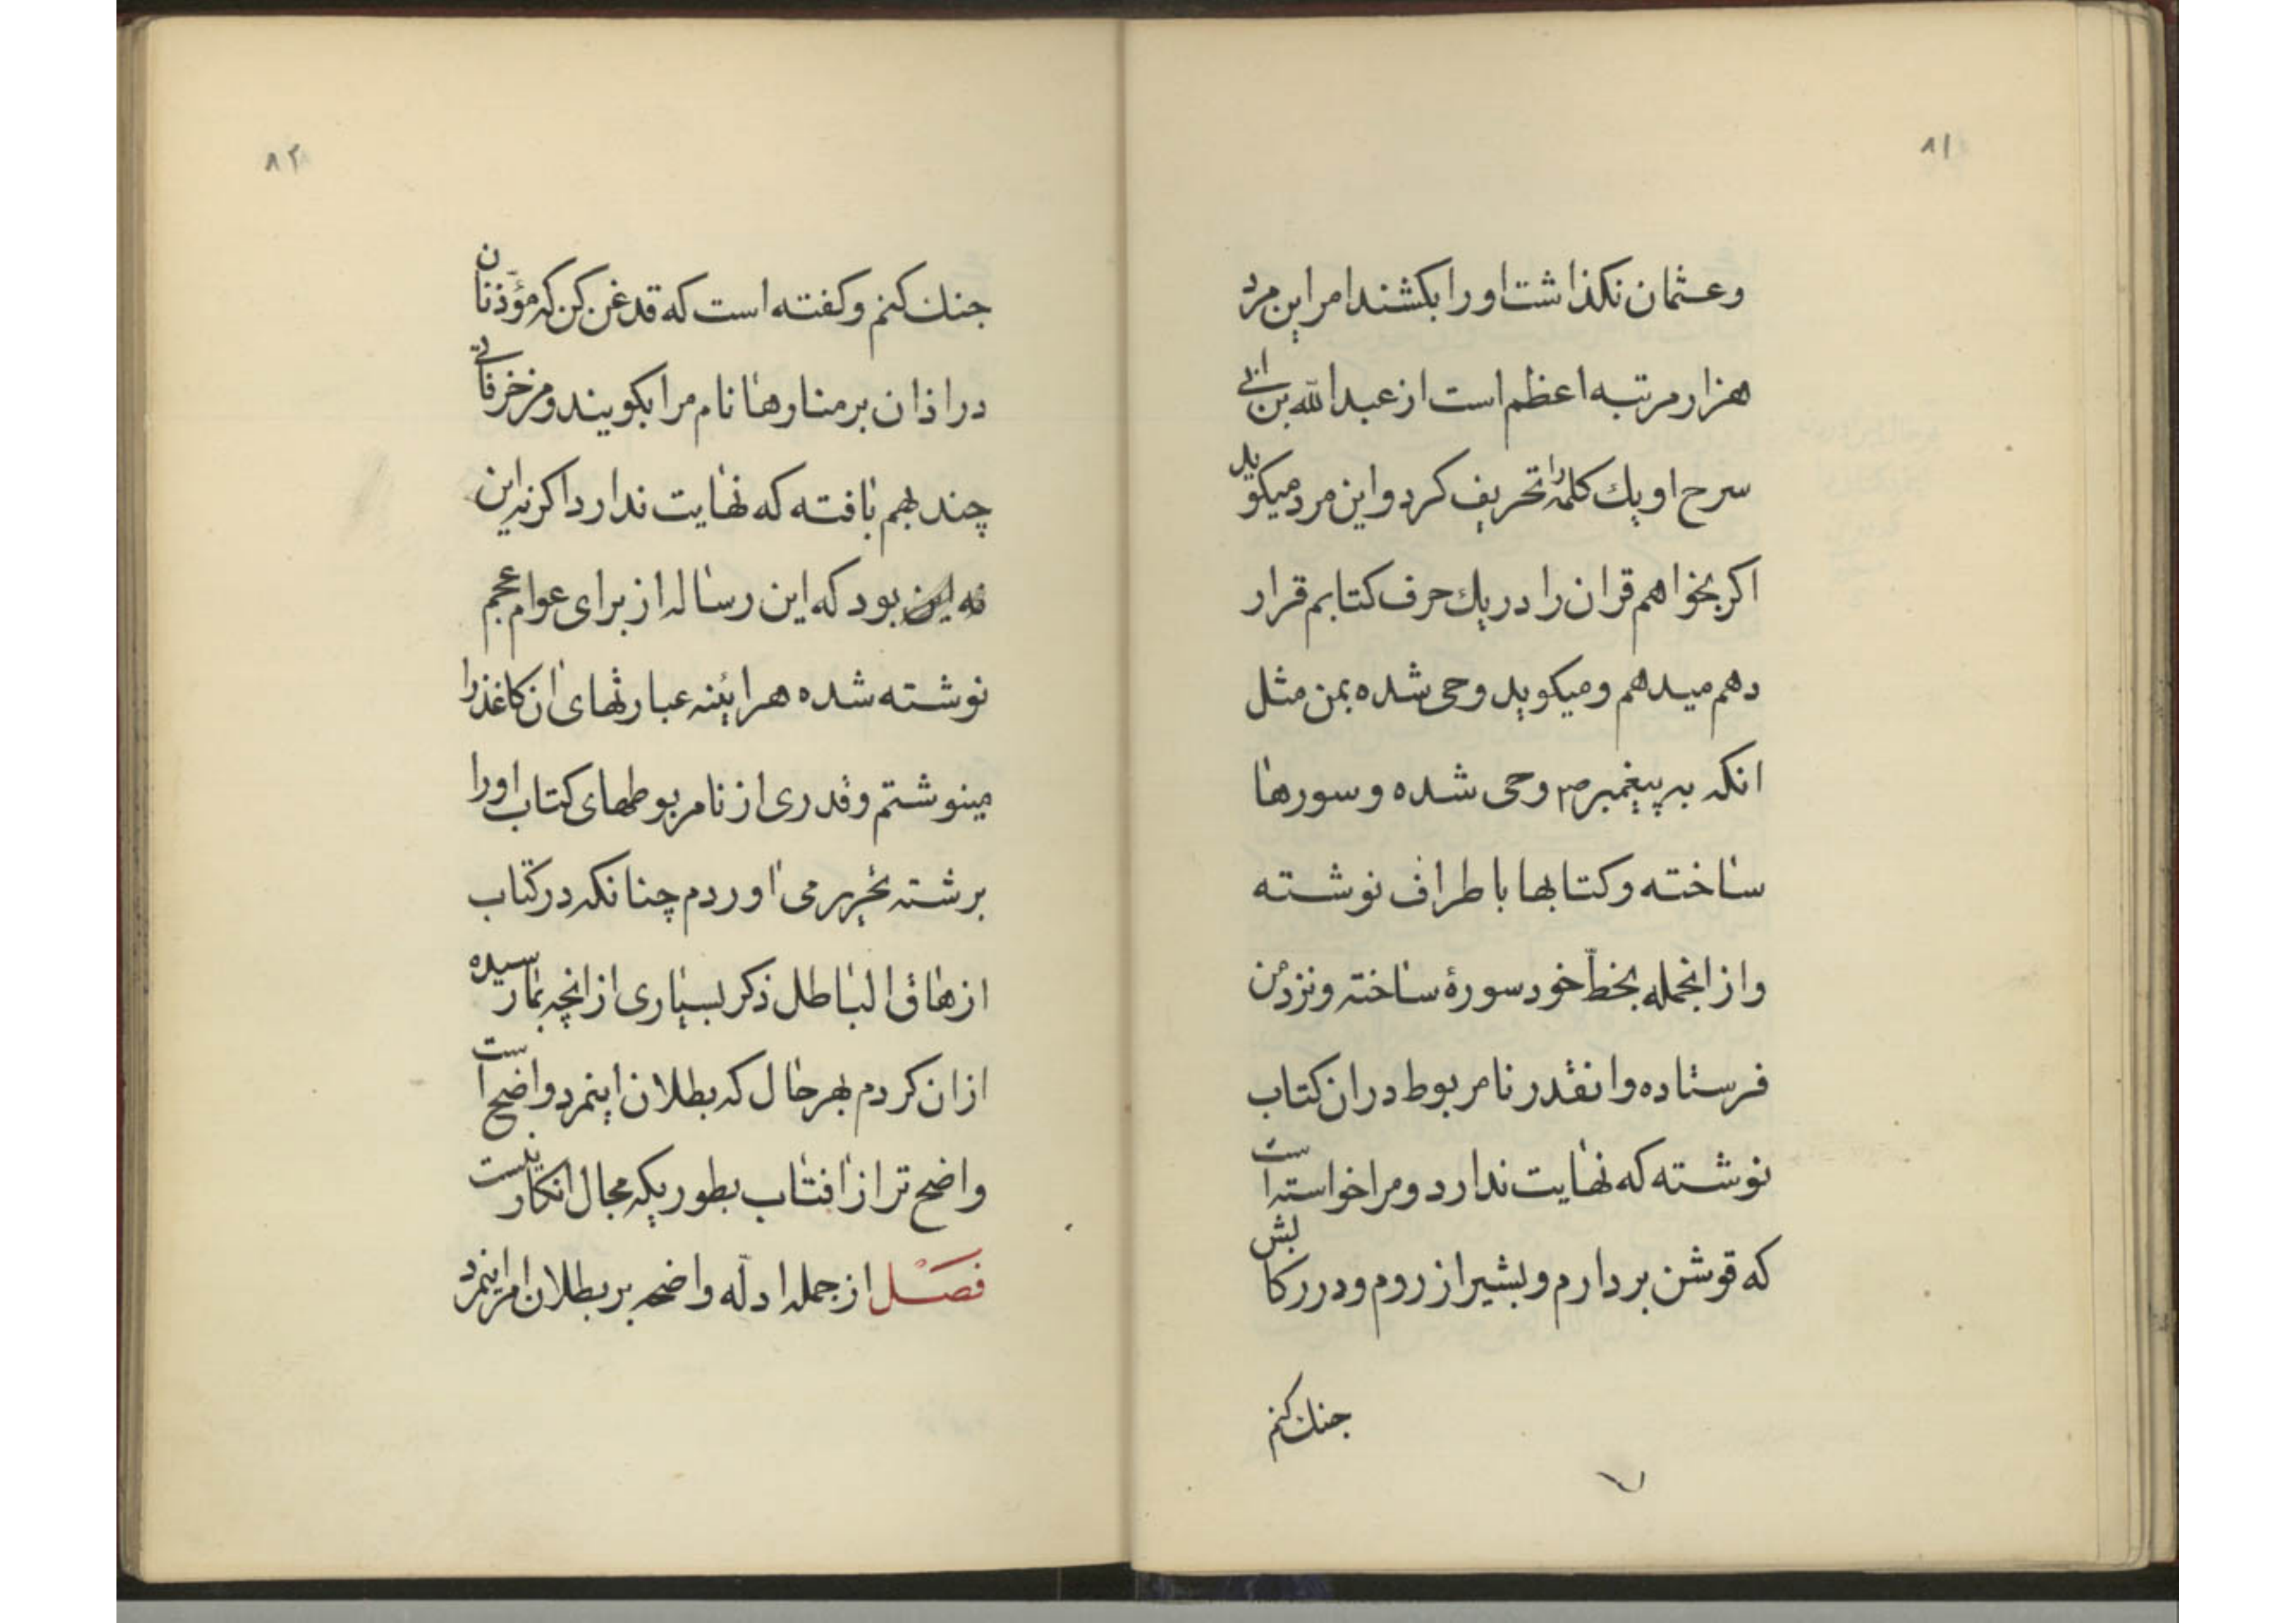 ۸۱
وعثمان نکذاشت اورا بکشند امر این مرد
هزار مرتبه اعظم است از عبدالله بن ابی
سرح او یك کلمه را تحریف کرد و این مرد میکوید
اکر بخواهم قران را در یك حرف کتابم قرار
دهم میدهم و میکوید وحی شده بمن مثل
انکه به پیغمبر ص۳ وحی شده و سورها
ساخته و کتابها باطراف نوشته
و از انجمله بخطّ خود سورۀ ساخته و نزد من
فرستاده و انقدر نامربوط در ان کتاب
نوشته که نهایت ندارد و مرا خواسته است
که قوشن بردارم و بشیراز روم و در رکابش
جنك کنم
۸۲
جنك کنم و کفته است که قدغن کن که مؤذّنان
در اذان بر منارها نام مرا بکویند و مزخرفاتی
چند بهم بافته که نهایت ندارد اکر نه این
نه این بود که این رساله از برای عوام عجم
نوشته شده هراینه عبارتهای ان کاغذ را
مینوشتم و قدری از نامربوطهای کتاب اورا
برشته تحریر می اوردم چنانکه در کتاب
ازهاق الباطل ذکر بسیاری از انچه بما رسیده
ازان کردم بهر حال که بطلان اینمرد واضح است
واضح تر از افتاب بطوریکه مجال انکار نیست
فصل از جمله ادلّه واضحه بر بطلان امر اینمرد